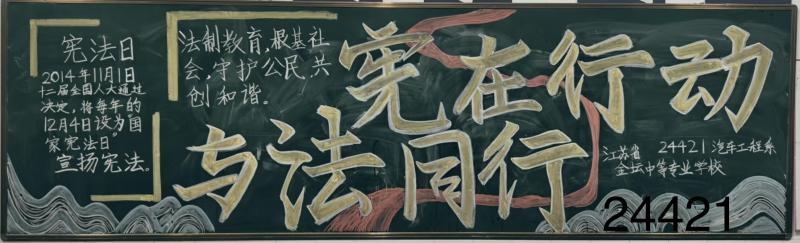 宪法日
2014年11月1日
十二届全国人大通过
决定,将每年的
12月4日设为国
家宪法日。
宣扬宪法。
法制教育,根基社
会,守护公民,共
创和谐。
宪在行动
与法同行
江苏省 24421汽车工程系
金坛中等专业学校
24421